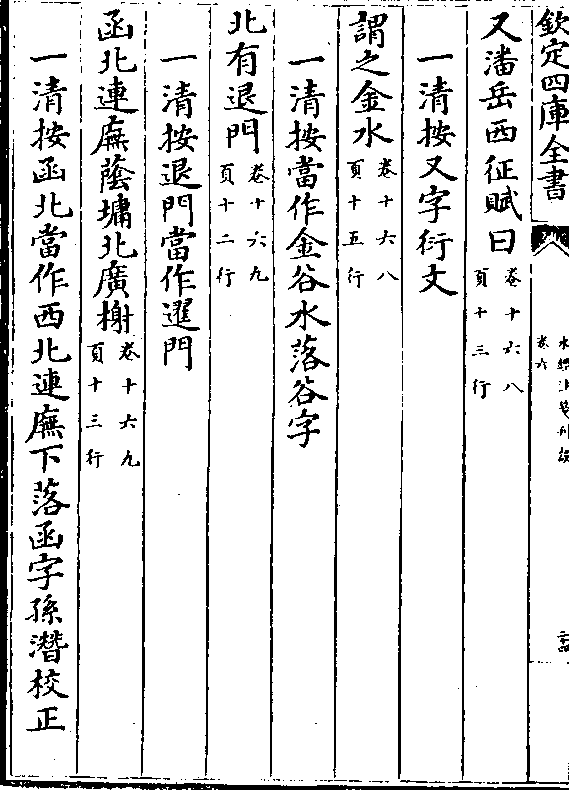 欽定四庫全書
水經注箋刊誤
卷六
又潘岳西征賦曰卷十六八頁十三行
一清按又字衍文
謂之金水卷十六八頁十五行
一清按當作金谷水落谷字
北有退門卷十六九頁十二行
一清按退門當作選門
函北連廡蔭墉北廣榭卷十六九頁十三行
一清按函北當作西北連廡下落函字孫潛校正